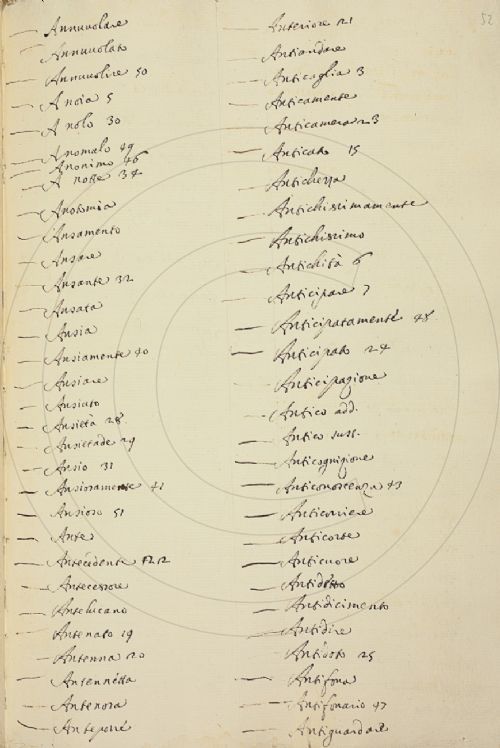 52
Annuvolare
Annuvolato
Annuvolire 50
A noia 5
A nolo 30
Anomalo 49
Anonimo 46
A notte 34
Anotomia
Ansamento
Ansare
Ansante 32
Ansata
Ansia
Ansiamente 40
Ansiare
Ansiato
Ansietà 28
Ansietade 29
Ansio 31
Ansiosamente 41
Ansioso 51
Ante
Antecedente
Antecessore
Antelucano
Antenato 19
Antenna 20
Antennetta
Antenora
Anteporre
Anteriore 21
Antiandare
Anticaglia 3
Anticamente
Anticamera 23
Anticato 15
Antichezza
Antichissimamente
Antichissimo
Antichità 6
Anticipare 7
Anticipatamente 48
Anticipato 24
Anticipazione
Antico add.
Antico sust.
Anticognizione
Anticonoscenza 43
Anticorriere
Anticorte
Anticuore
Antidetto
Antidicimento
Antidire
Antidoto 25
Antifona
Antifonario 47
Antiguardare